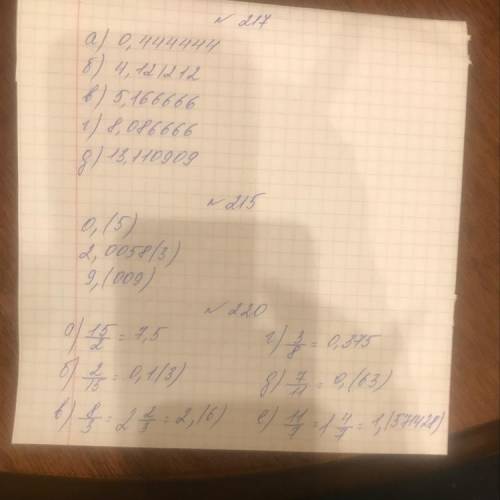 № 217
а) 0,444444
б) 4,121212
в) 5,166666
г) 8,086666
д) 13,110909
№ 215
0,(5)
2,0058(3)
9,(009)
№ 220
а) 15/2 = 7,5 г) 3/8 = 0,375
б) 2/15 = 0,1(3) д) 7/11 = 0,(63)
в) 8/3 = 2 2/3 = 2,(6) е) 11/7 = 1 4/7 = 1,(571428)